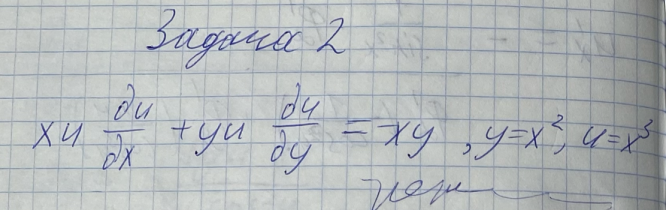 Задача 2
xu ∂u/∂x + yu ∂u/∂y = -xy, y=x², u=x³